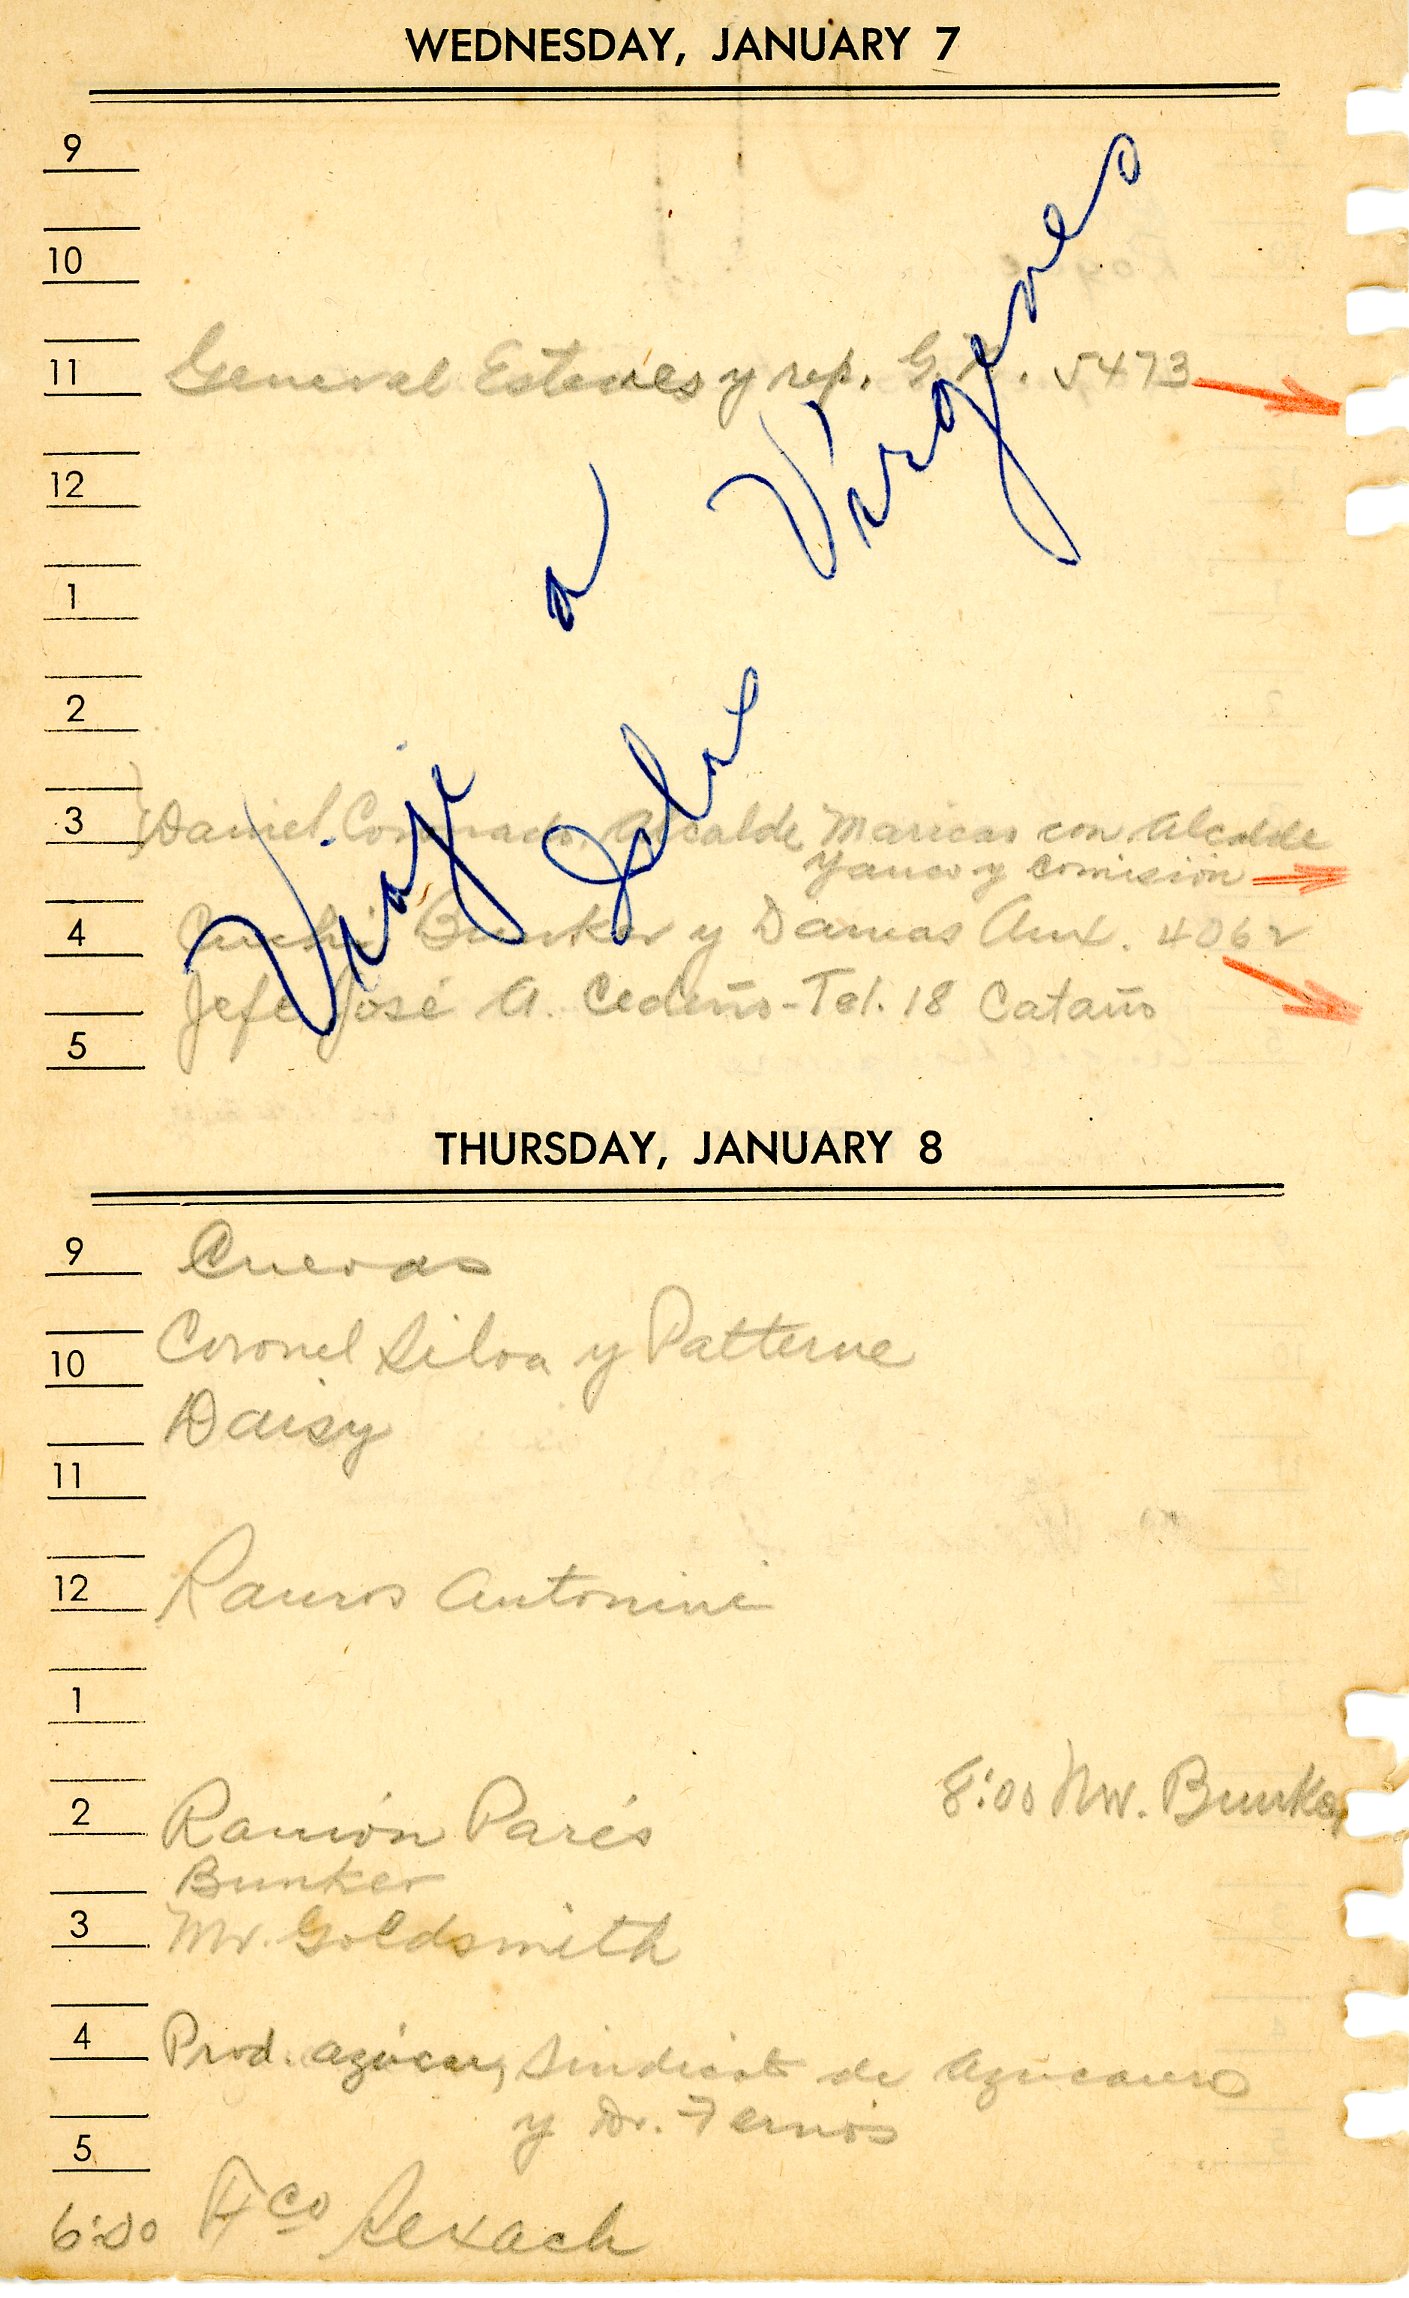 WEDNESDAY, JANUARY 7
9
10
11 General Esteves y rep. G. 5473
12
1
2
3 Daniel Alcalde Maricao con Alcalde
Yauco y Comisión
4 Bunker y Damas Aux. 4062
Jefe José A. Cedeño - Tel. 18 Cataño
5
Viaje a Virgenes
Islas
THURSDAY, JANUARY 8
9 Cuevas
10 Coronel Silva y Patterne
Daisy
11
12 Ramos Antonini
1
8:00 Mr. Bunker
2 Ramón Parés
Bunker
3 Mr. Goldsmith
4 Prod. azúcar, Sindicato de Azucarero
y Dr. Fernós
5
6:00 Fco Rexach